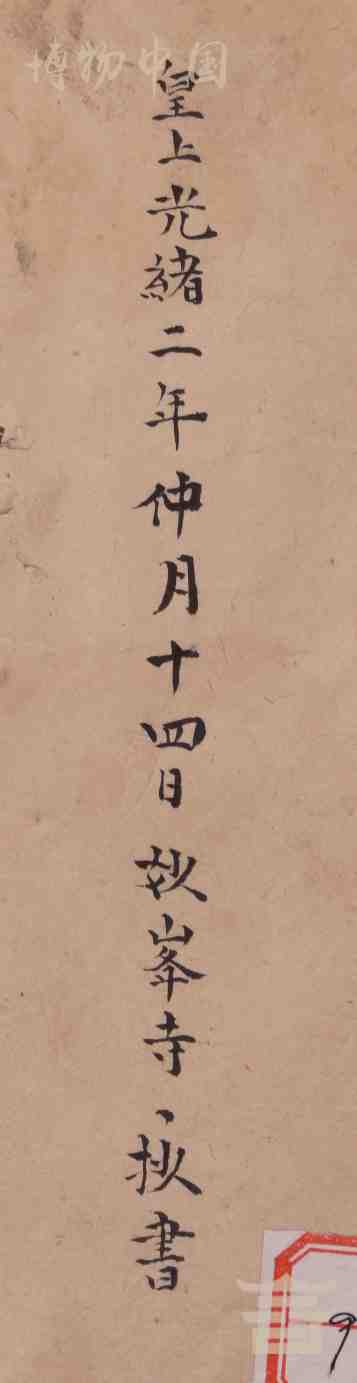 博物中国
皇上光緒二年仲月十四日妙峯寺、抄書
9